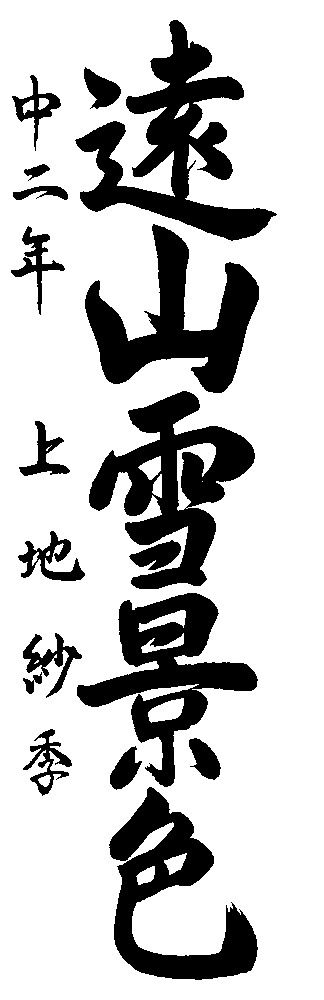 遠山雪景色
中二年 上地紗季